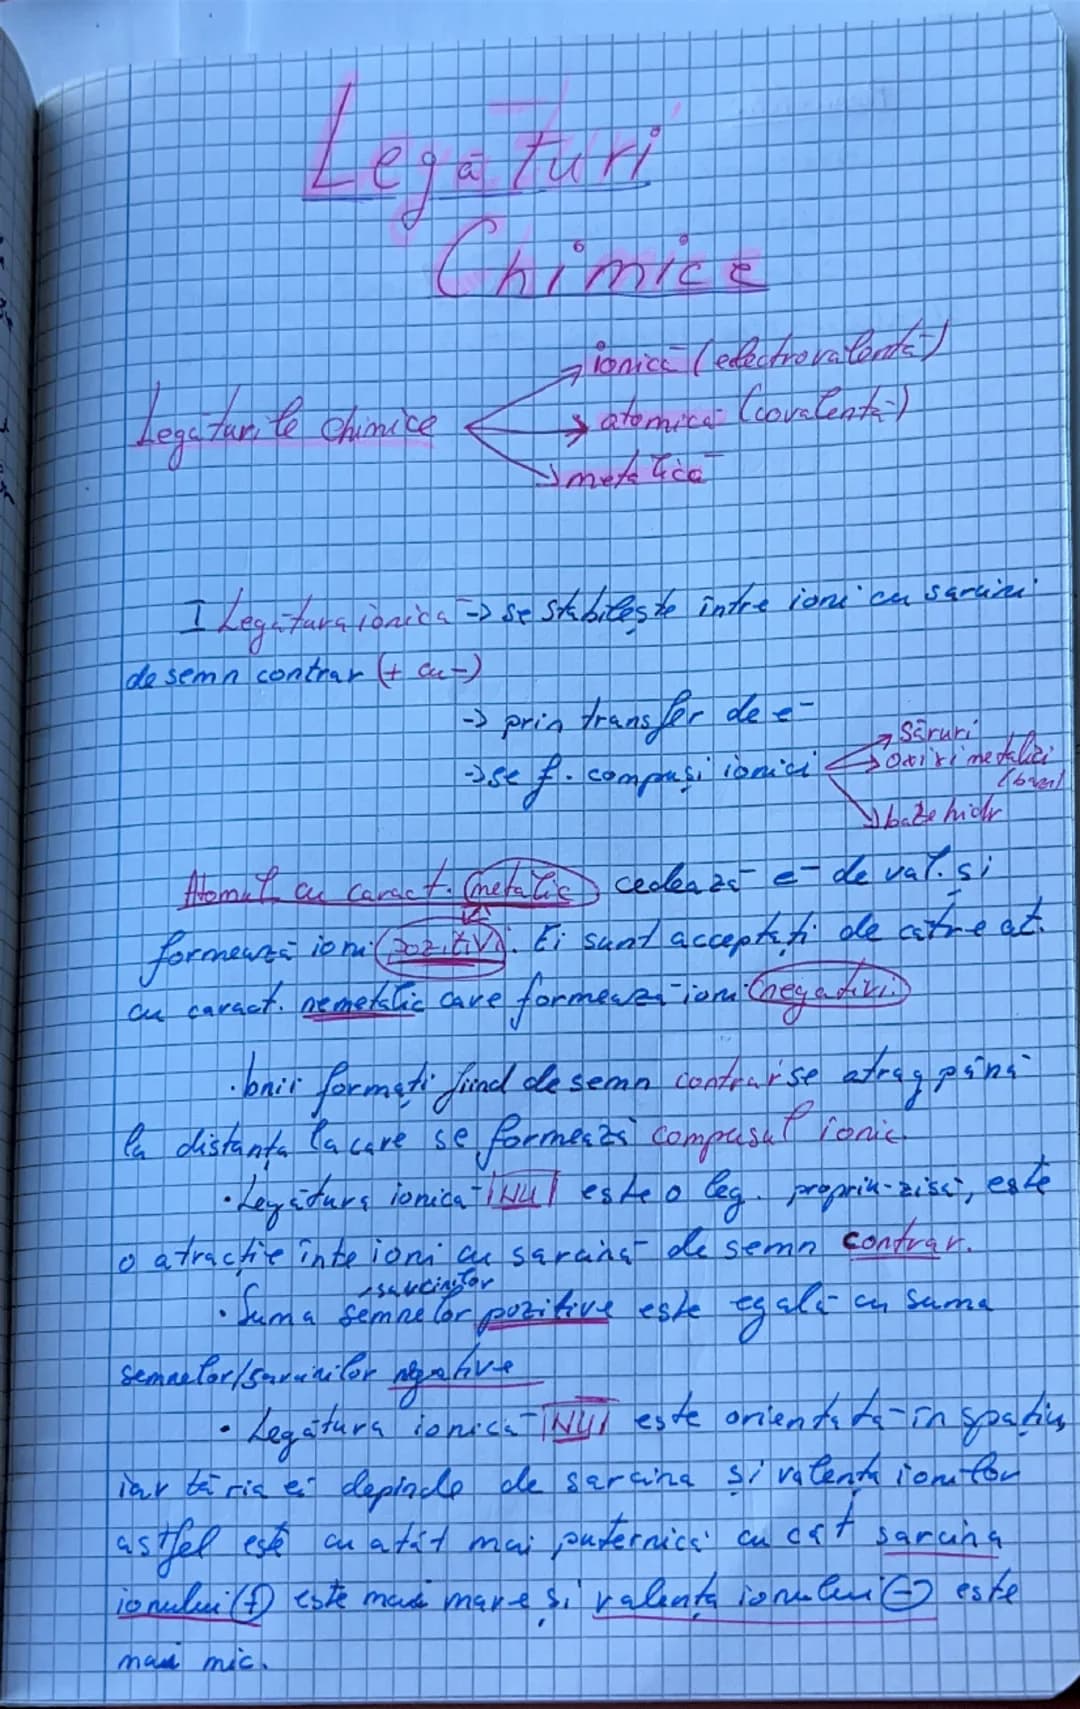 Legături
Chimice
Legăturile chimice
ionică (electrovalentă)
atomică (covalentă)
metalică
I Legătura ionică -> se stabilește între ioni cu sarcini
de semn contrar (+ cu -)
-> prin transfer de e-
-> se f. compuși ionici
săruri
oxizi metalici
baze hidr
Atomul cu caract. metalic cedează e- de val. și
formează ioni pozitivi. Ei sunt acceptați de catre at.
cu caract. nemetalic care formează ioni negativi.
formați fiind de semn contrar se atrag până
la distanța la care se formează compusul ionic.
• Legătura ionică NU este o leg. propriu-zisă, este
o atracție inte ioni cu sarcină de semn contrar.
sarcinilor
• Suma semnelor pozitive este egală cu suma
semnelor/sarcinilor negative
• Legătura ionică NU este orientată în spațiu,
iar tăria ei depinde de sarcina și valența ionilor
astfel este cu atât mai puternică cu cât sarcina
ionului (+) este mai mare și valența ionului (-) este
mai mic.